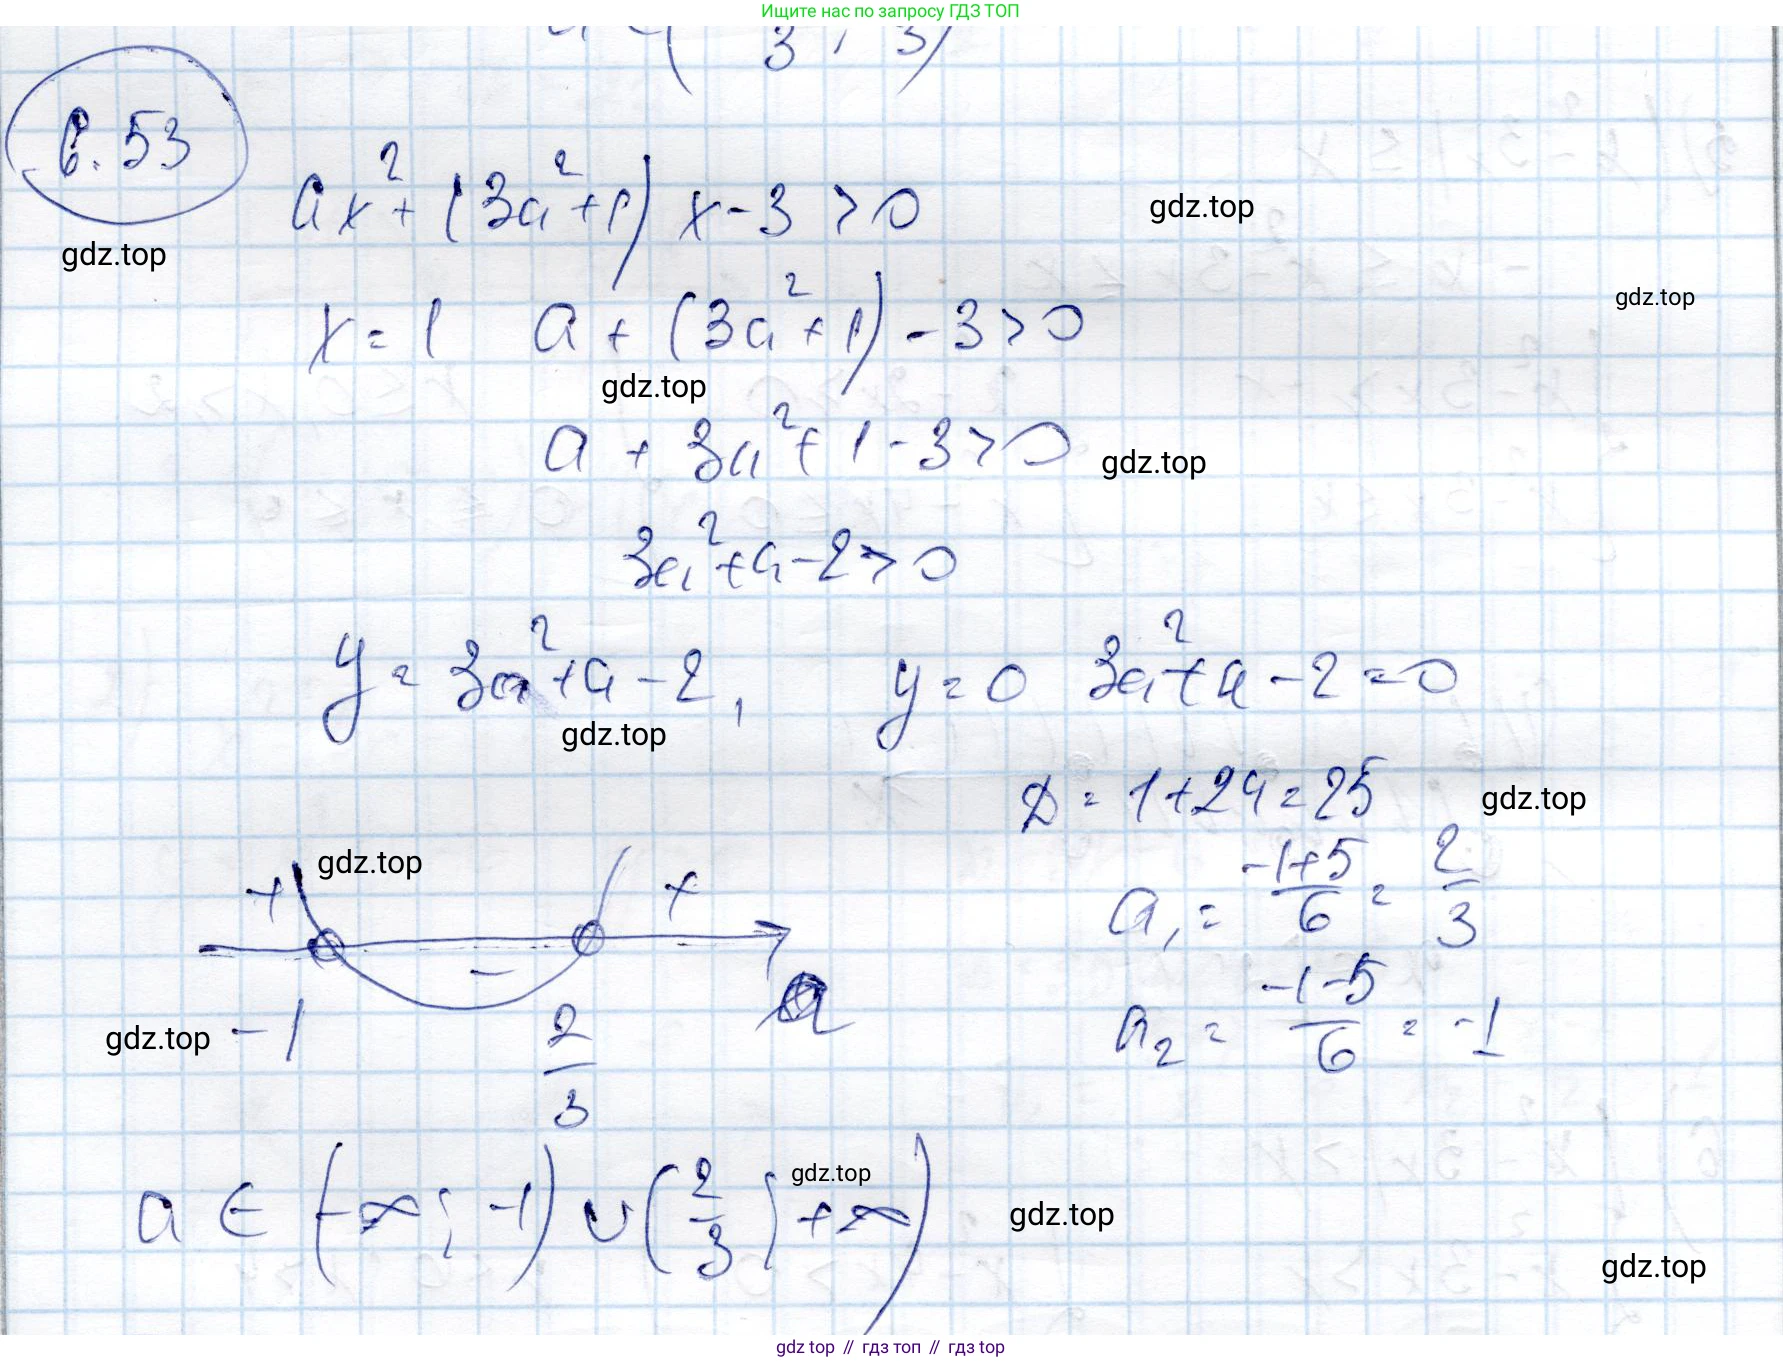 Ищите нас по запросу ГДЗ ТОП
3 ; 3)
6.53
ax² + (3a² + 1) x - 3 > 0
gdz.top
gdz.top
gdz.top
x = 1 a + (3a² + 1) - 3 > 0
gdz.top
a + 3a² + 1 - 3 > 0
gdz.top
3a² + a - 2 > 0
y = 3a² + a - 2, y = 0 3a² + a - 2 = 0
gdz.top
D = 1 + 24 = 25
gdz.top
gdz.top
+ - +
a₁ = (-1+5)/6 = 2/3
-1 2/3 a
gdz.top
a₂ = (-1-5)/6 = -1
a ∈ (-∞; -1) ∪ (2/3; +∞)
gdz.top
gdz.top
gdz.top
gdz.top // гдз топ // гдз top